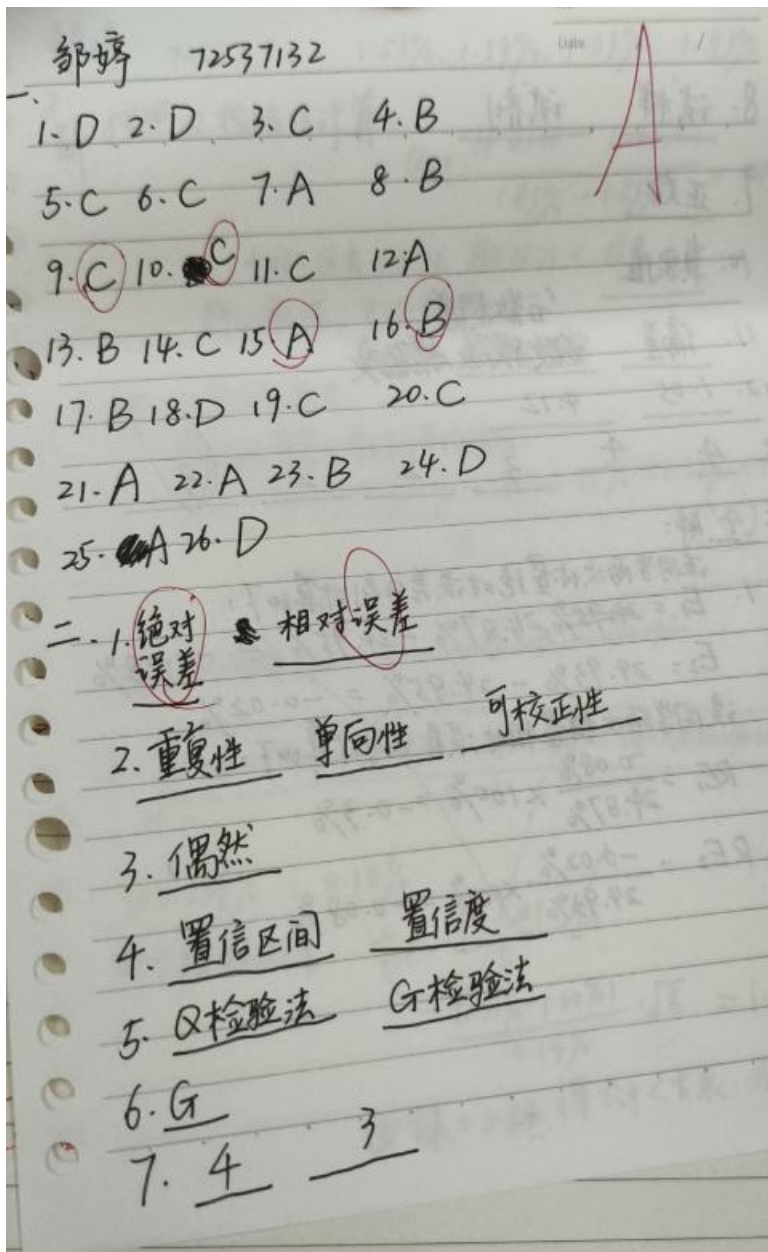 邹婷 72537132
A
Date /
一、
1. D 2. D 3. C 4. B
5. C 6. C 7. A 8. B
9. C 10. C 11. C 12. A
13. B 14. C 15. A 16. B
17. B 18. D 19. C 20. C
21. A 22. A 23. B 24. D
25. A 26. D
二. 1. 绝对误差 相对误差
2. 重复性 单向性 可校正性
3. 偶然
4. 置信区间 置信度
5. Q检验法 G检验法
6. G
7. 4 3